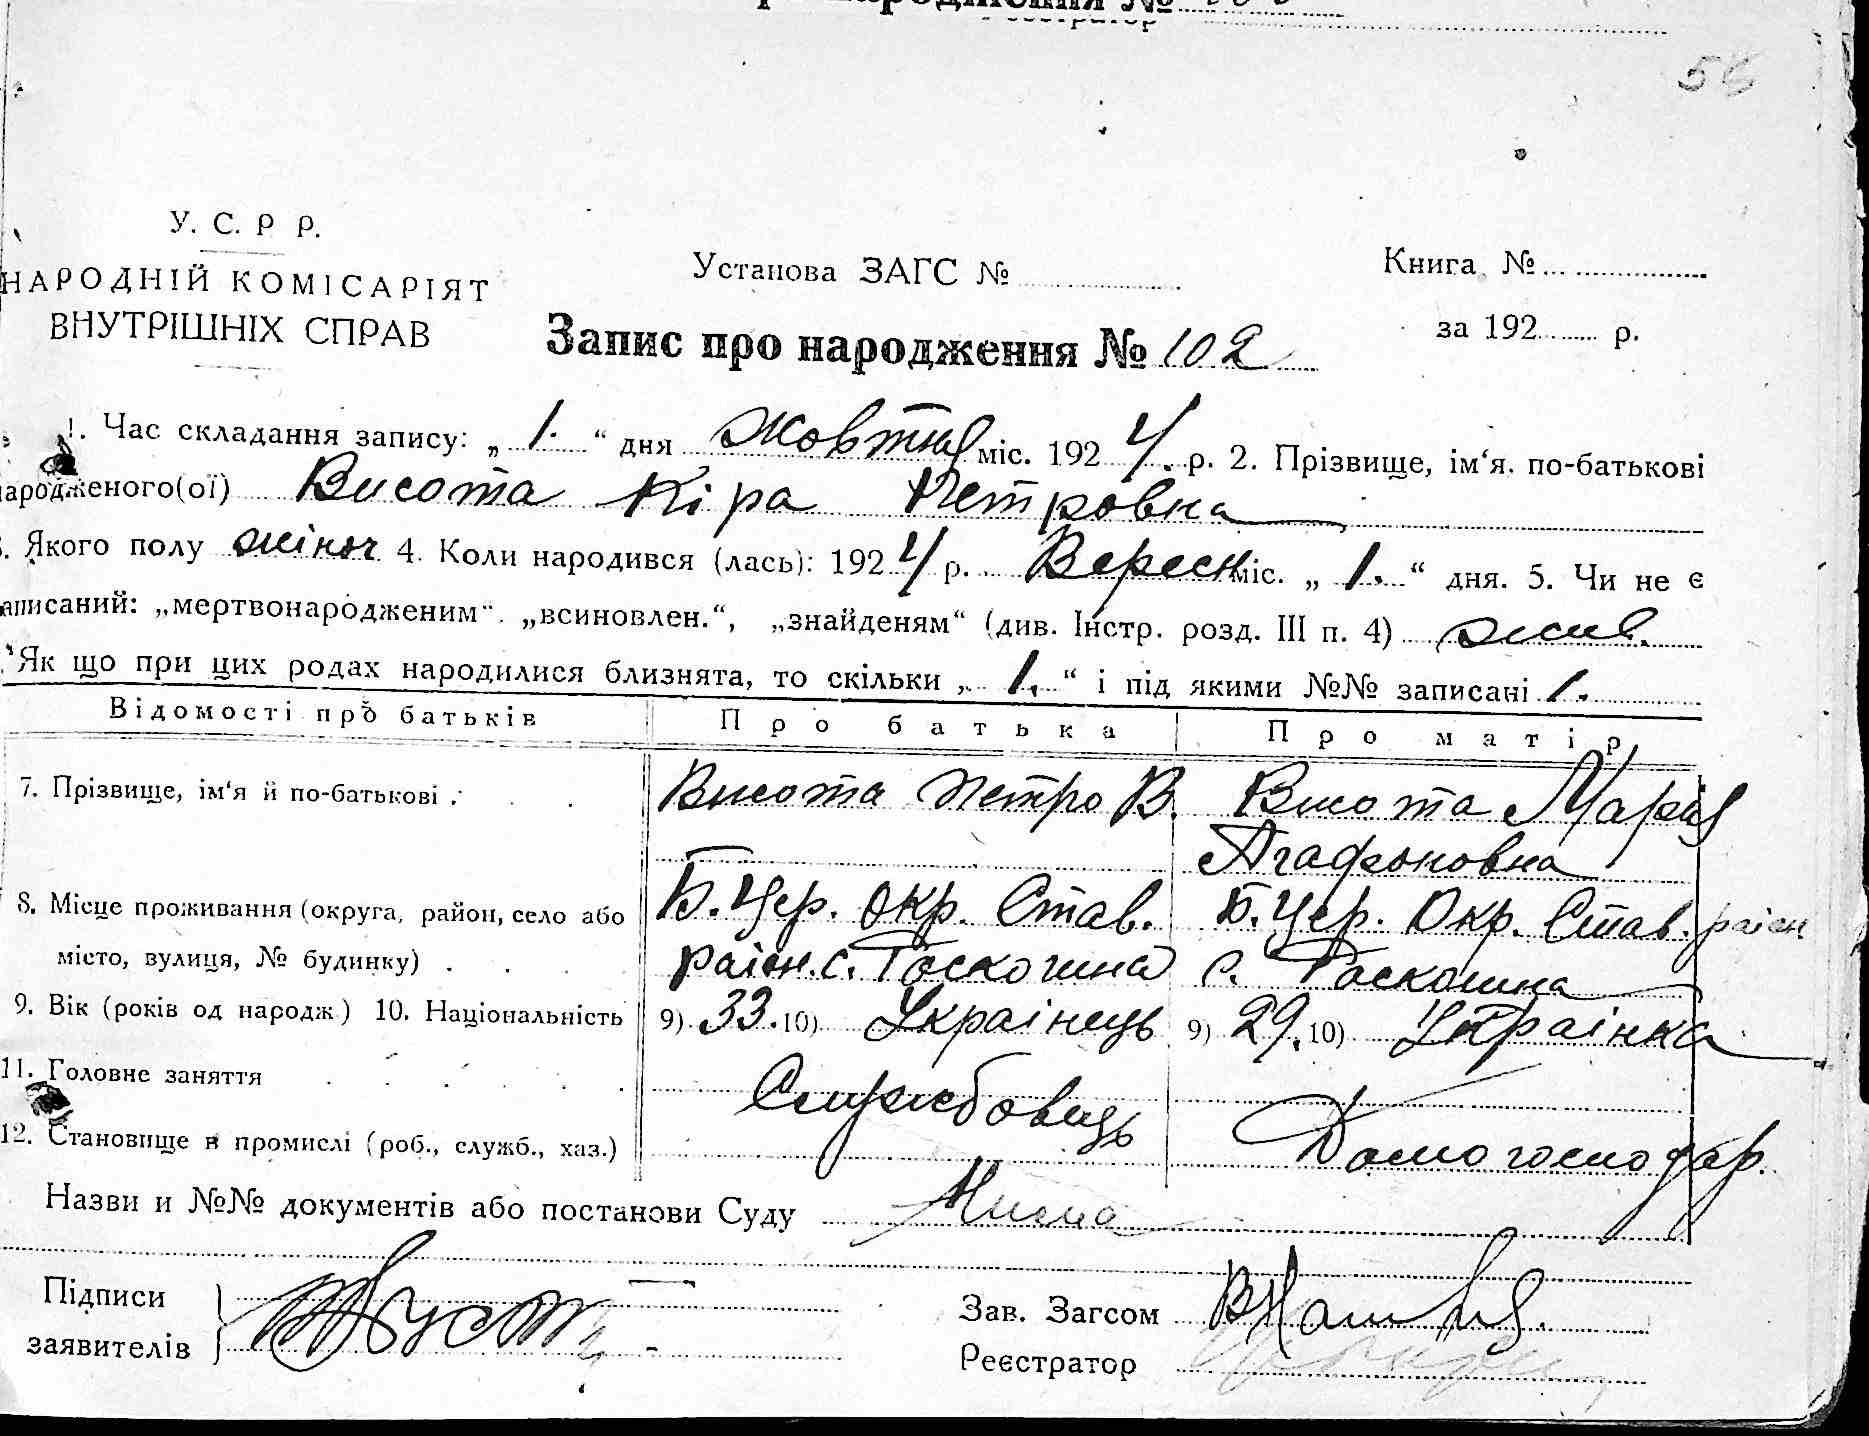 56
У. С. Р Р.
НАРОДНІЙ КОМІСАРІЯТ
ВНУТРІШНІХ СПРАВ
Установа ЗАГС №
Книга №
за 192 р.
Запис про народження № 102
1. Час складання запису: „ 1. “ дня Жовтня міс. 192 4. р. 2. Прізвище, ім‘я, по-батькові
народженого(ої) Висота Кіра Петровна
Якого полу жіноч 4. Коли народився (лась): 192 4 р. Вересн міс. „ 1. “ дня. 5. Чи не є
записаний: „мертвонародженим“. „всиновлен.“, „знайденям“ (див. Інстр. розд. III п. 4) жив.
Як що при цих родах народилися близнята, то скільки „ 1. “ і під якими №№ записані 1.
Відомості про батьків Про батька Про матір
7. Прізвище, ім‘я й по-батькові Висота Петро В. Висота Марія
Агафоновна
8. Місце проживання (округа, район, село або Б. Цер. Окр. Став. Б. Цер. Окр. Став. раіон
місто, вулиця, № будинку) раіон. с. Роскошна с. Роскошна
9. Вік (років од народж) 10. Національність 9) 33. 10) Украінець 9) 29. 10) Украінка
11. Головне заняття Службовець
12. Становище в промислі (роб., служб., хаз.) Домогосподар.
Назви и №№ документів або постанови Суду
Підписи
заявителів
Зав. Загсом
Реєстратор